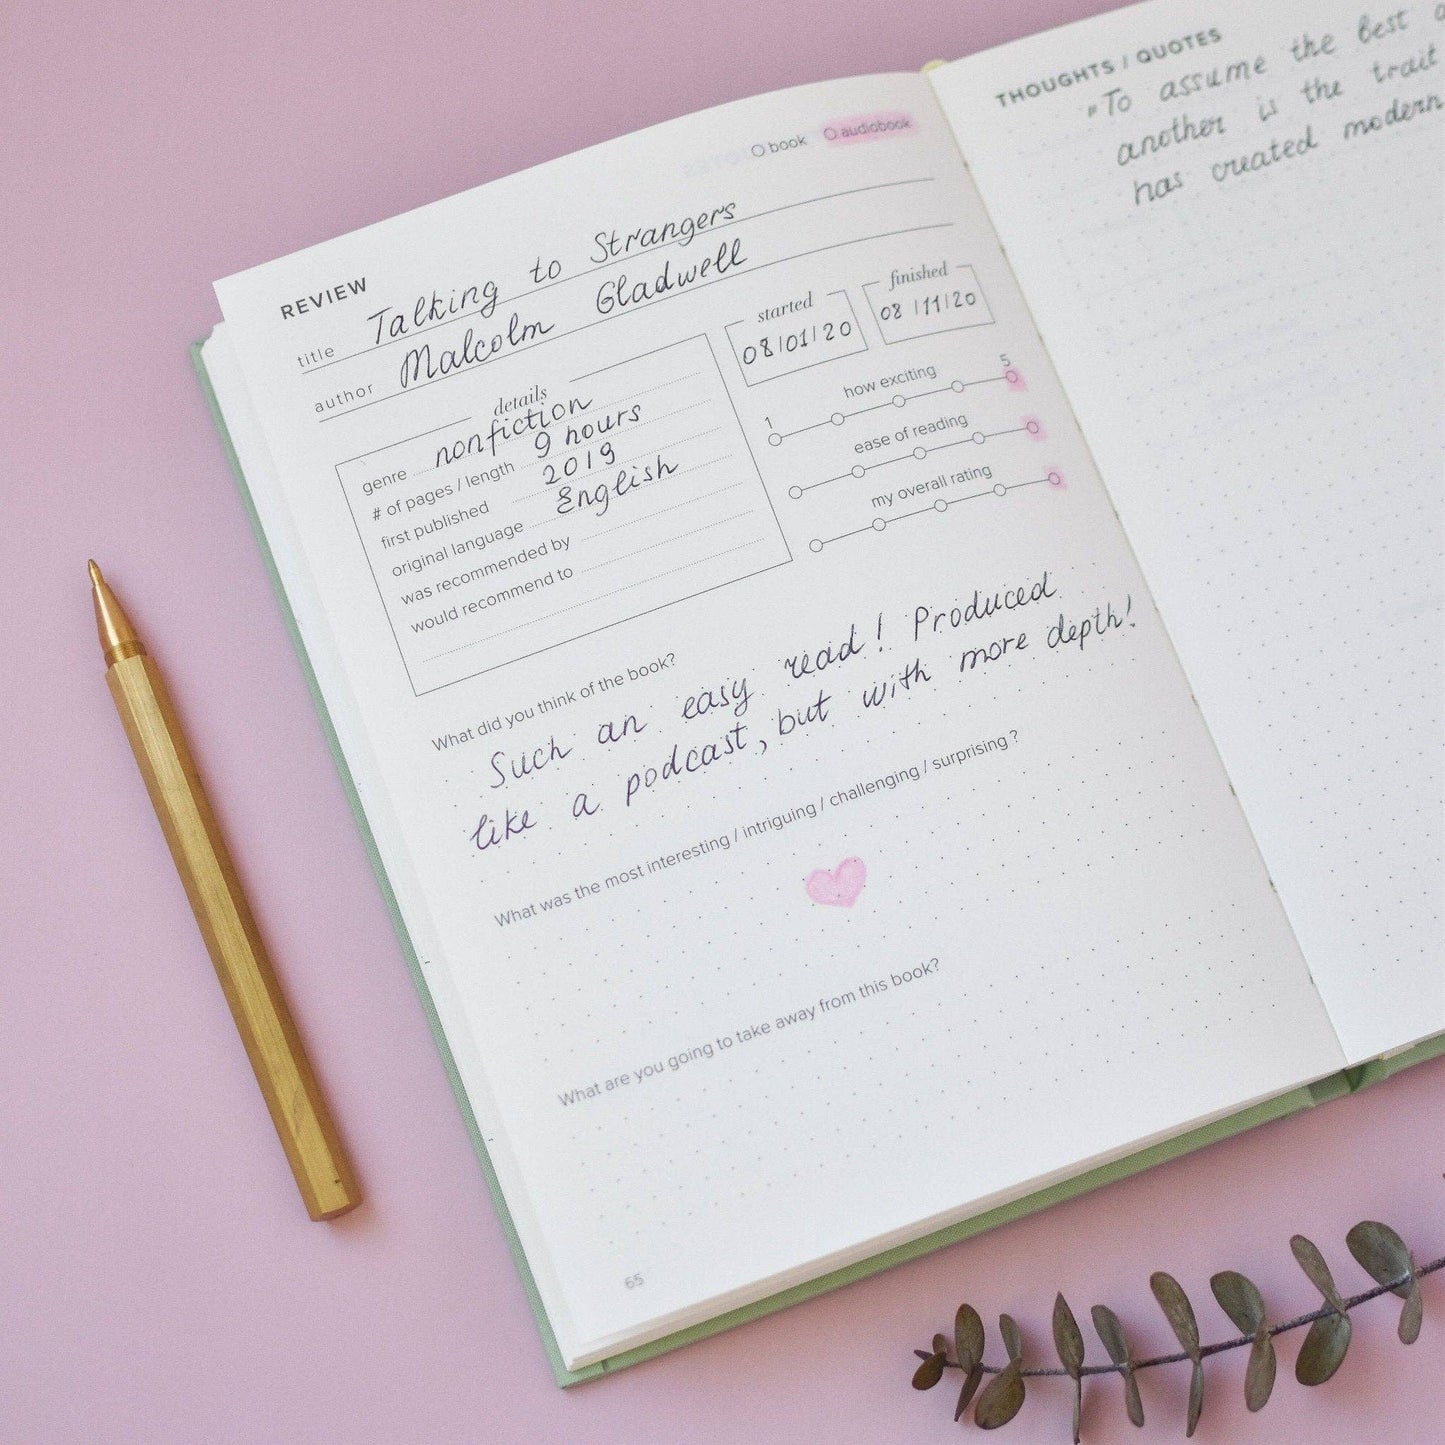 book audiobook
REVIEW
title Talking to Strangers
author Malcolm Gladwell
details
genre nonfiction
# of pages / length 9 hours
first published 2019
original language English
was recommended by
would recommend to
started
08/01/20
finished
08/11/20
how exciting
1 5
ease of reading
my overall rating
What did you think of the book?
Such an easy read! Produced
like a podcast, but with more depth!
What was the most interesting / intriguing / challenging / surprising?
What are you going to take away from this book?
65
THOUGHTS / QUOTES
"To assume the best
another is the trait
has created modern